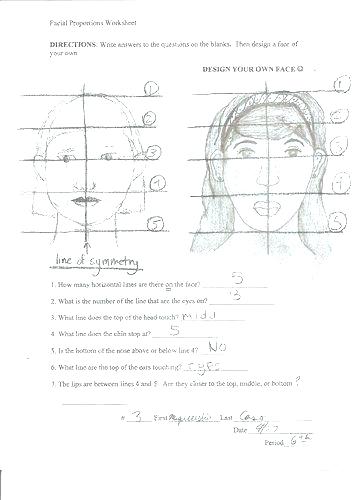 Facial Proportions Worksheet
DIRECTIONS: Write answers to the questions on the blanks. Then design a face of
your own
DESIGN YOUR OWN FACE ☺
1 1
2 2
3 3
4 4
5 5
line of symmetry
1. How many horizontal lines are there on the face? 5
2. What is the number of the line that are the eyes on? 3
3. What line does the top of the head touch? midd
4. What line does the chin stop at? 5
5. Is the bottom of the nose above or below line 4? No
6. What line are the top of the ears touching? eyes
7. The lips are between lines 4 and 5. Are they closer to the top, middle, or bottom?
# 3 First Last
Date
Period 6th